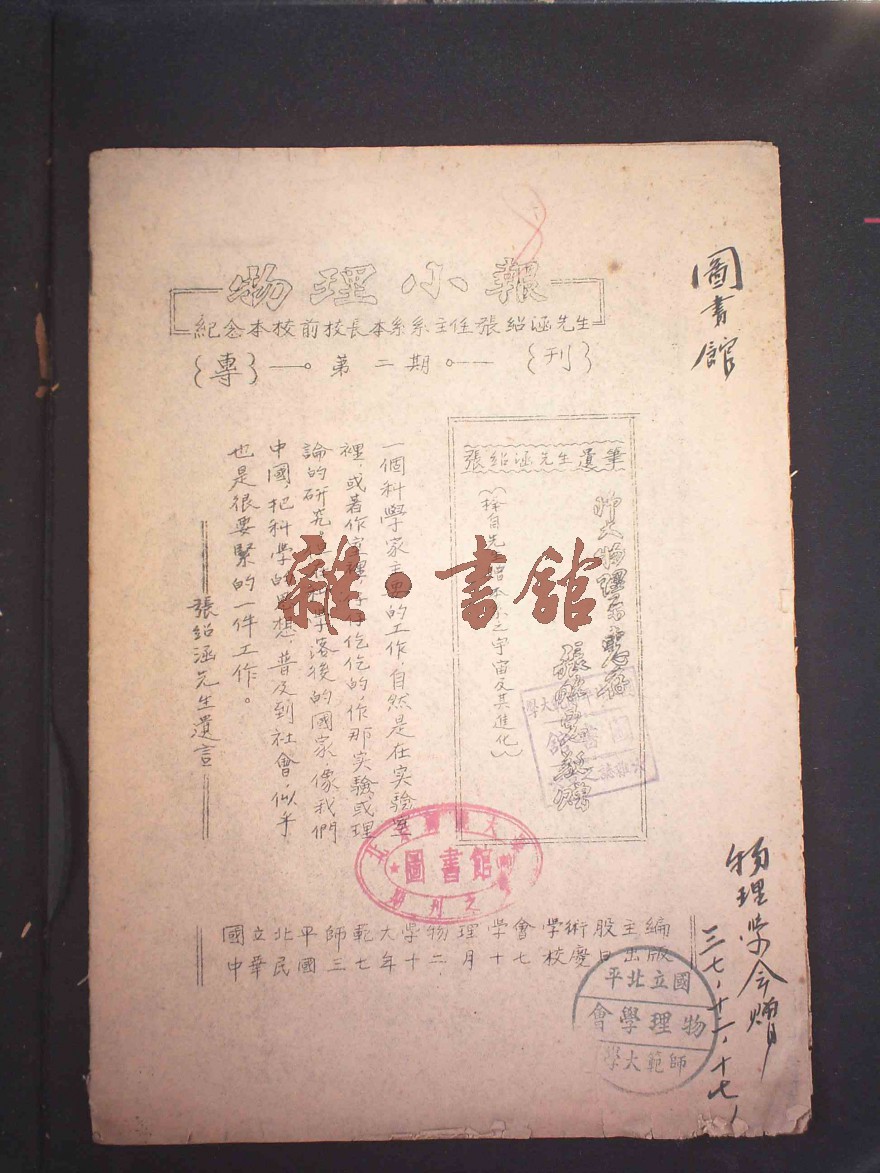 物理小報
紀念本校前校長本系系主任張紹涵先生
{專} 第二期 {刊}
張紹涵先生遺筆
師大物理系惠存
張紹涵敬贈
之宇宙及其進化
一個科學家主要的工作，自然是在实驗室
裡，或著作室裡，仔仔仡仡的作那实驗或理
論的研究。科學落後的國家，像我們
中國，把科學的思想，普及到社會，似乎
也是很要緊的一件工作。
張紹涵先生遺言
國立北平師範大學物理學會學術股主編
中華民國三七年十二月十七校慶日出版
雜·書館
圖書館
期刊之
圖書館
國立北平
物理學會
師範大學
圖書館
物理学会贈
三七、十二、十七、